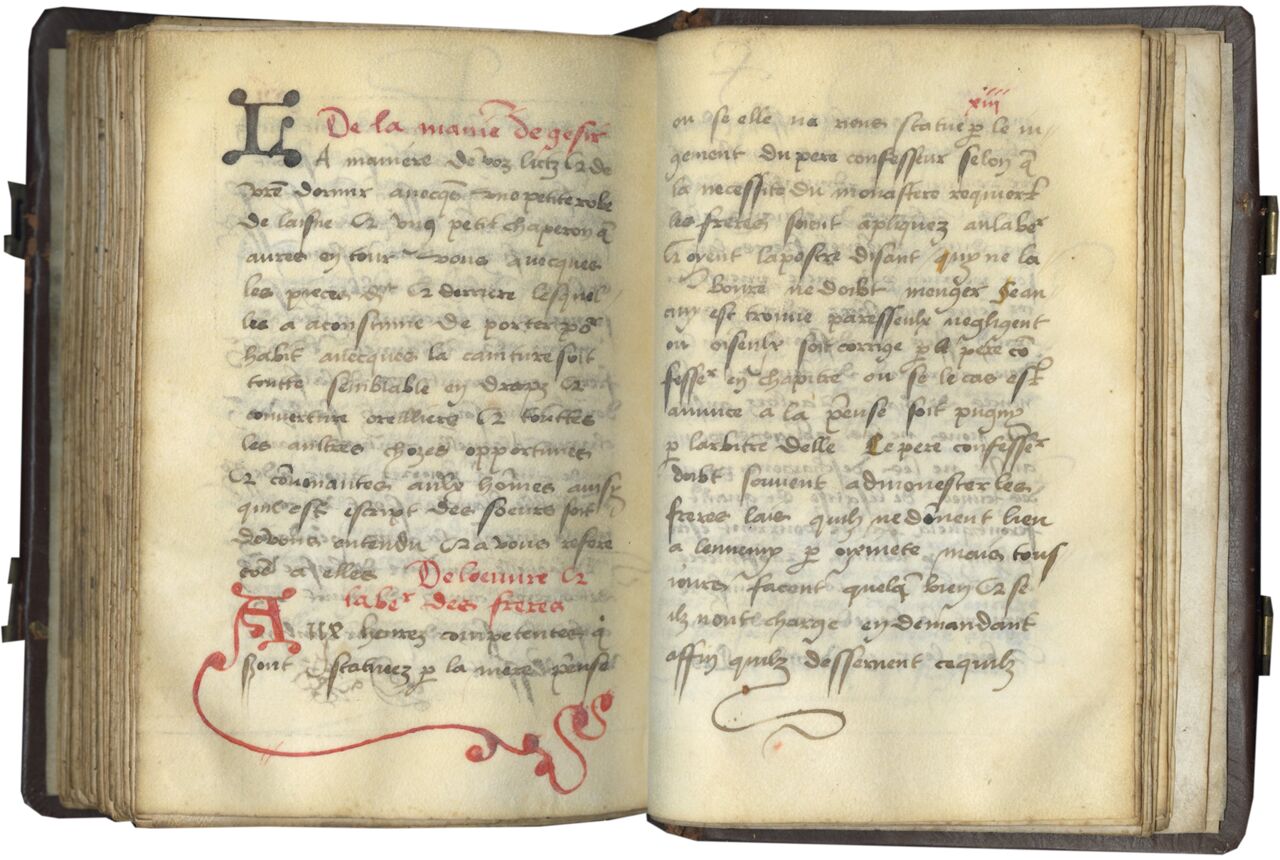 De la manie de gesir
LA maniere de voz lictz & de
vre dormir avecqs une petite robe
de laisne & ung petit chaperon q
aures en tour vous avecques
les pieces & derriere lesquel
les a acoustume de porter por
habit avecques la cainture soit
toutte semblable en drapz &
couverture oreilliers & touttes
les aultres chozes opportunes
& covenantes aulx homes ainsy
quil est escript des soeurs soit
de vous entendu & a vous refere
coe a elles De loeuvre &
laber des freres
AUX heurez competentes q
Sont statueez p la mere pense
xiii
ou se elle na nous statue p le iu
gement du pere confesseur selon q
la necessite du monastere requiert
les freres soient apliquez au laber
& oyent lapostre disant quy ne la
boure ne doibt menger Se au
cuy est trouve paresseulx negligent
ou oiseulx soit corrige p le pere co
fesser en chapitre ou se le cas est
anunce a la pense soit pugny
p larbitre delle Le pere confesser
doibt souvent admonester les
freres lais quilz ne donent lieu
a lennemy p oysivete mais tous
iours facent quelq bien & se
ilz nont charge en demandant
affin quilz desservent ce quilz